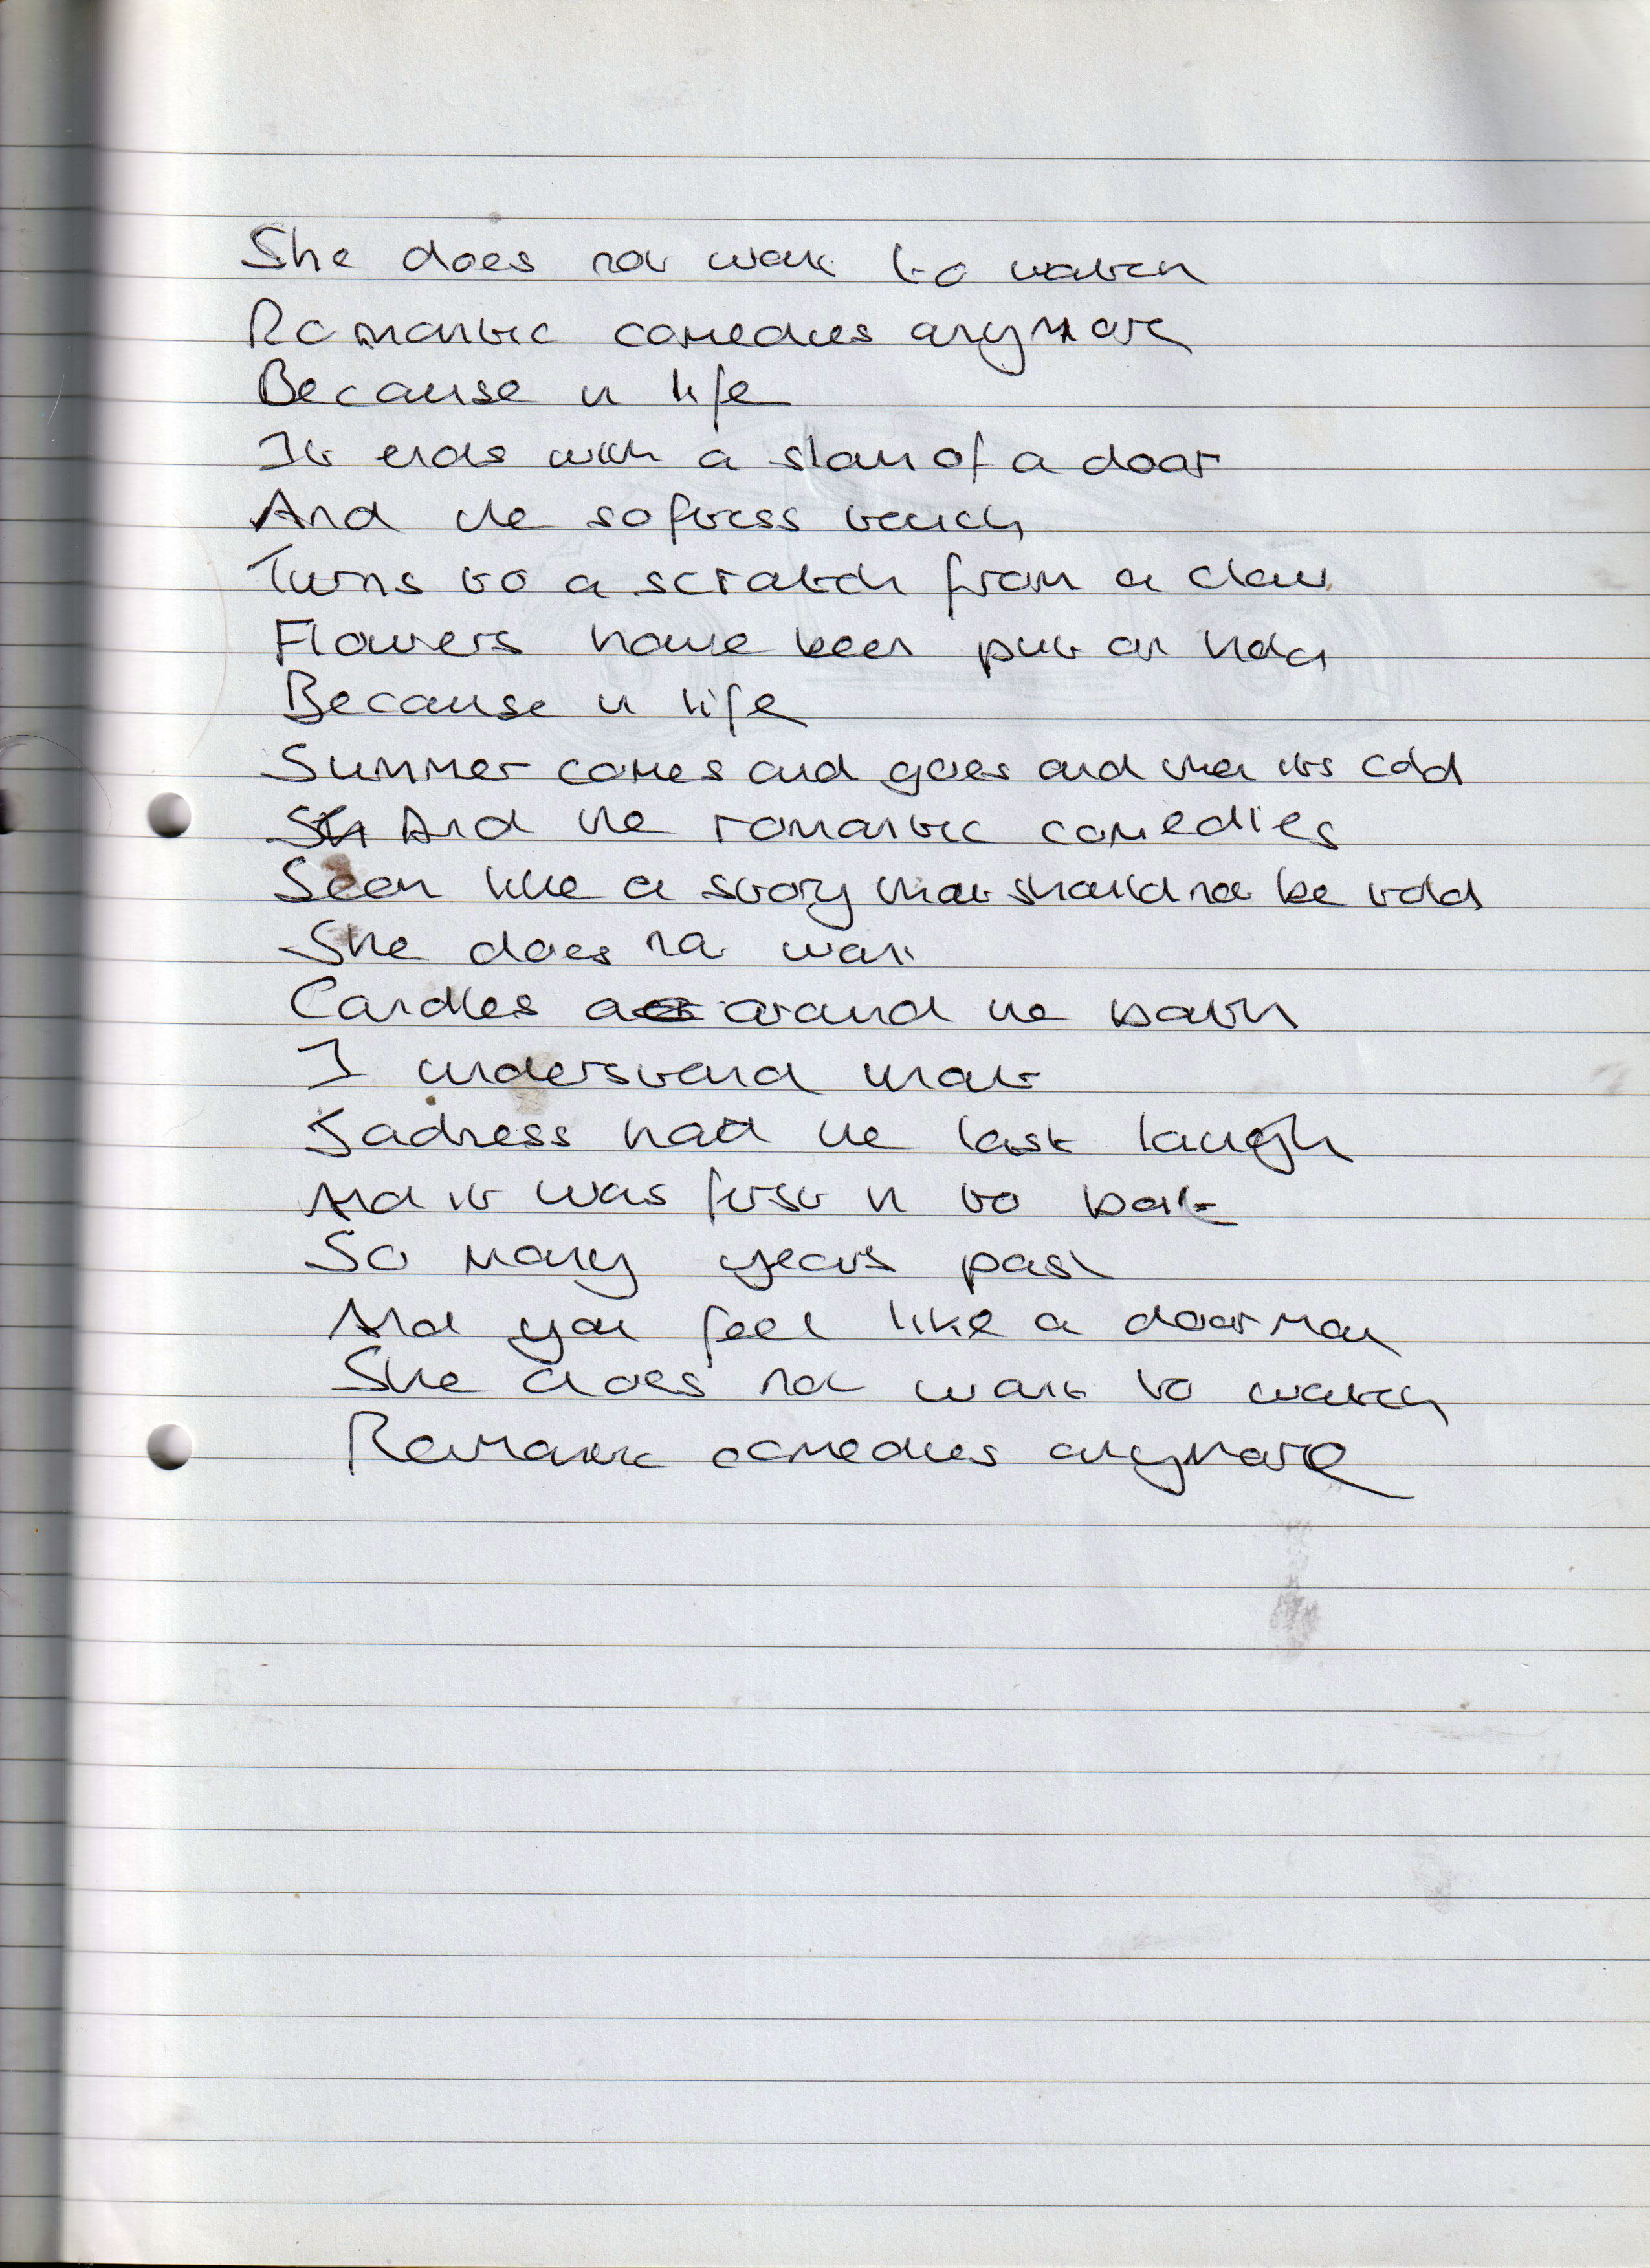 She does not want to watch
Romantic comedies anymore
Because in life
It ends with a slam of a door
And the softness touch
Turns to a scratch from a claw
Flowers have been put on hold
Because in life
Summer comes and goes and then its cold
And the romantic comedies
Seem like a story that should not be told
She does not want
Candles around the bath
I understand that
Sadness had the last laugh
And it was first in to bat
So many years past
And you feel like a doormat
She does not want to watch
Romantic comedies anymore